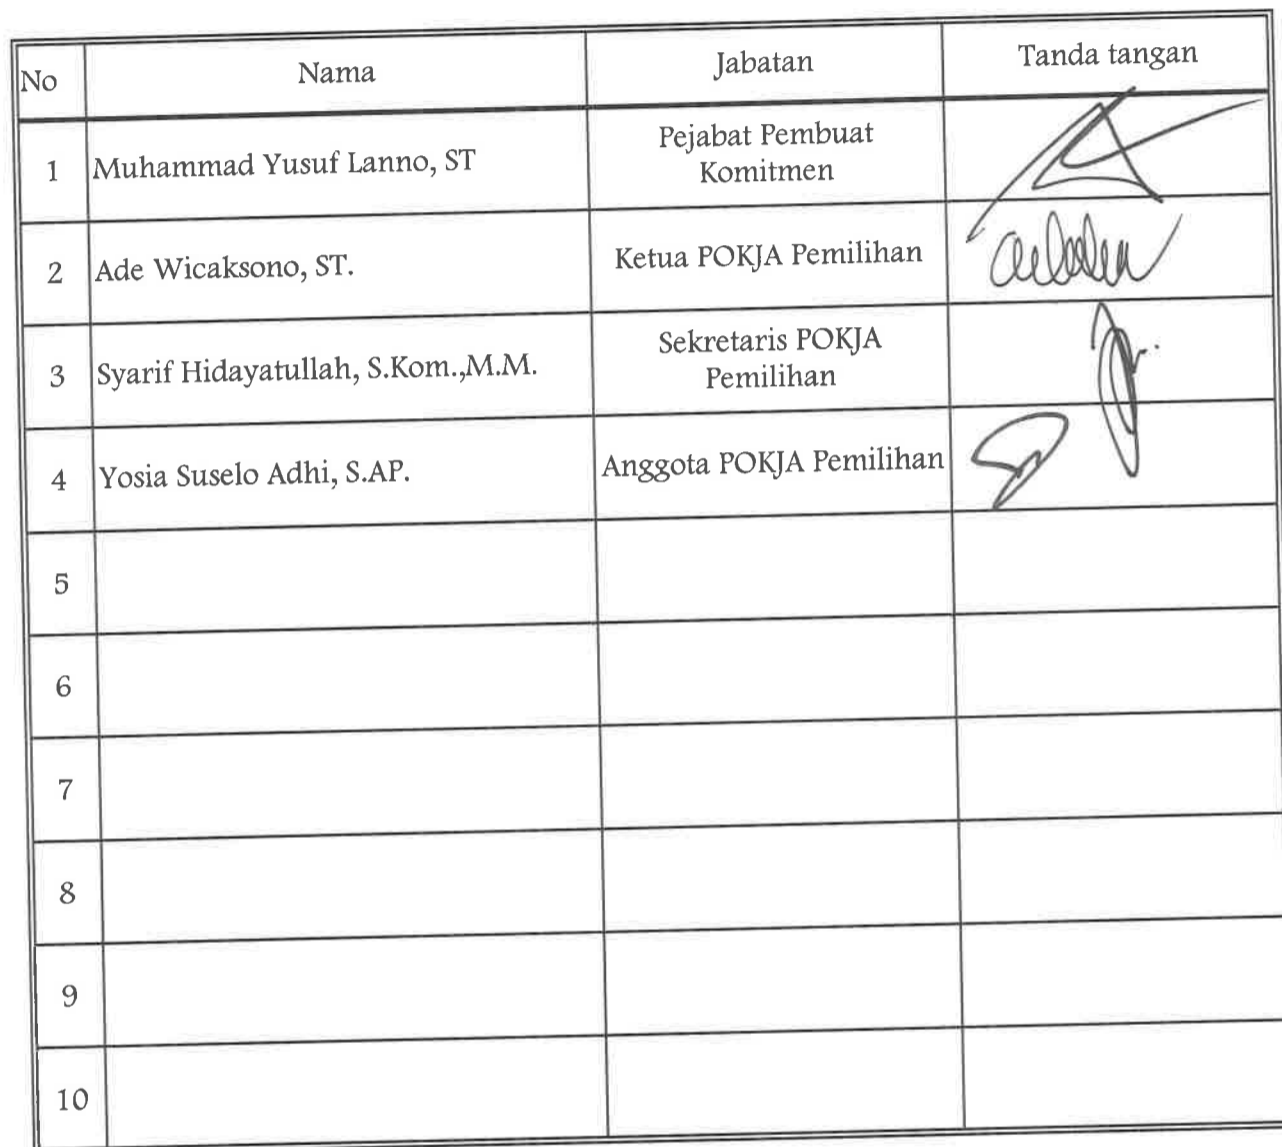 No Nama Jabatan Tanda tangan
1 Muhammad Yusuf Lanno, ST Pejabat Pembuat
Komitmen
2 Ade Wicaksono, ST. Ketua POKJA Pemilihan
3 Syarif Hidayatullah, S.Kom.,M.M. Sekretaris POKJA
Pemilihan
4 Yosia Suselo Adhi, S.AP. Anggota POKJA Pemilihan
5
6
7
8
9
10